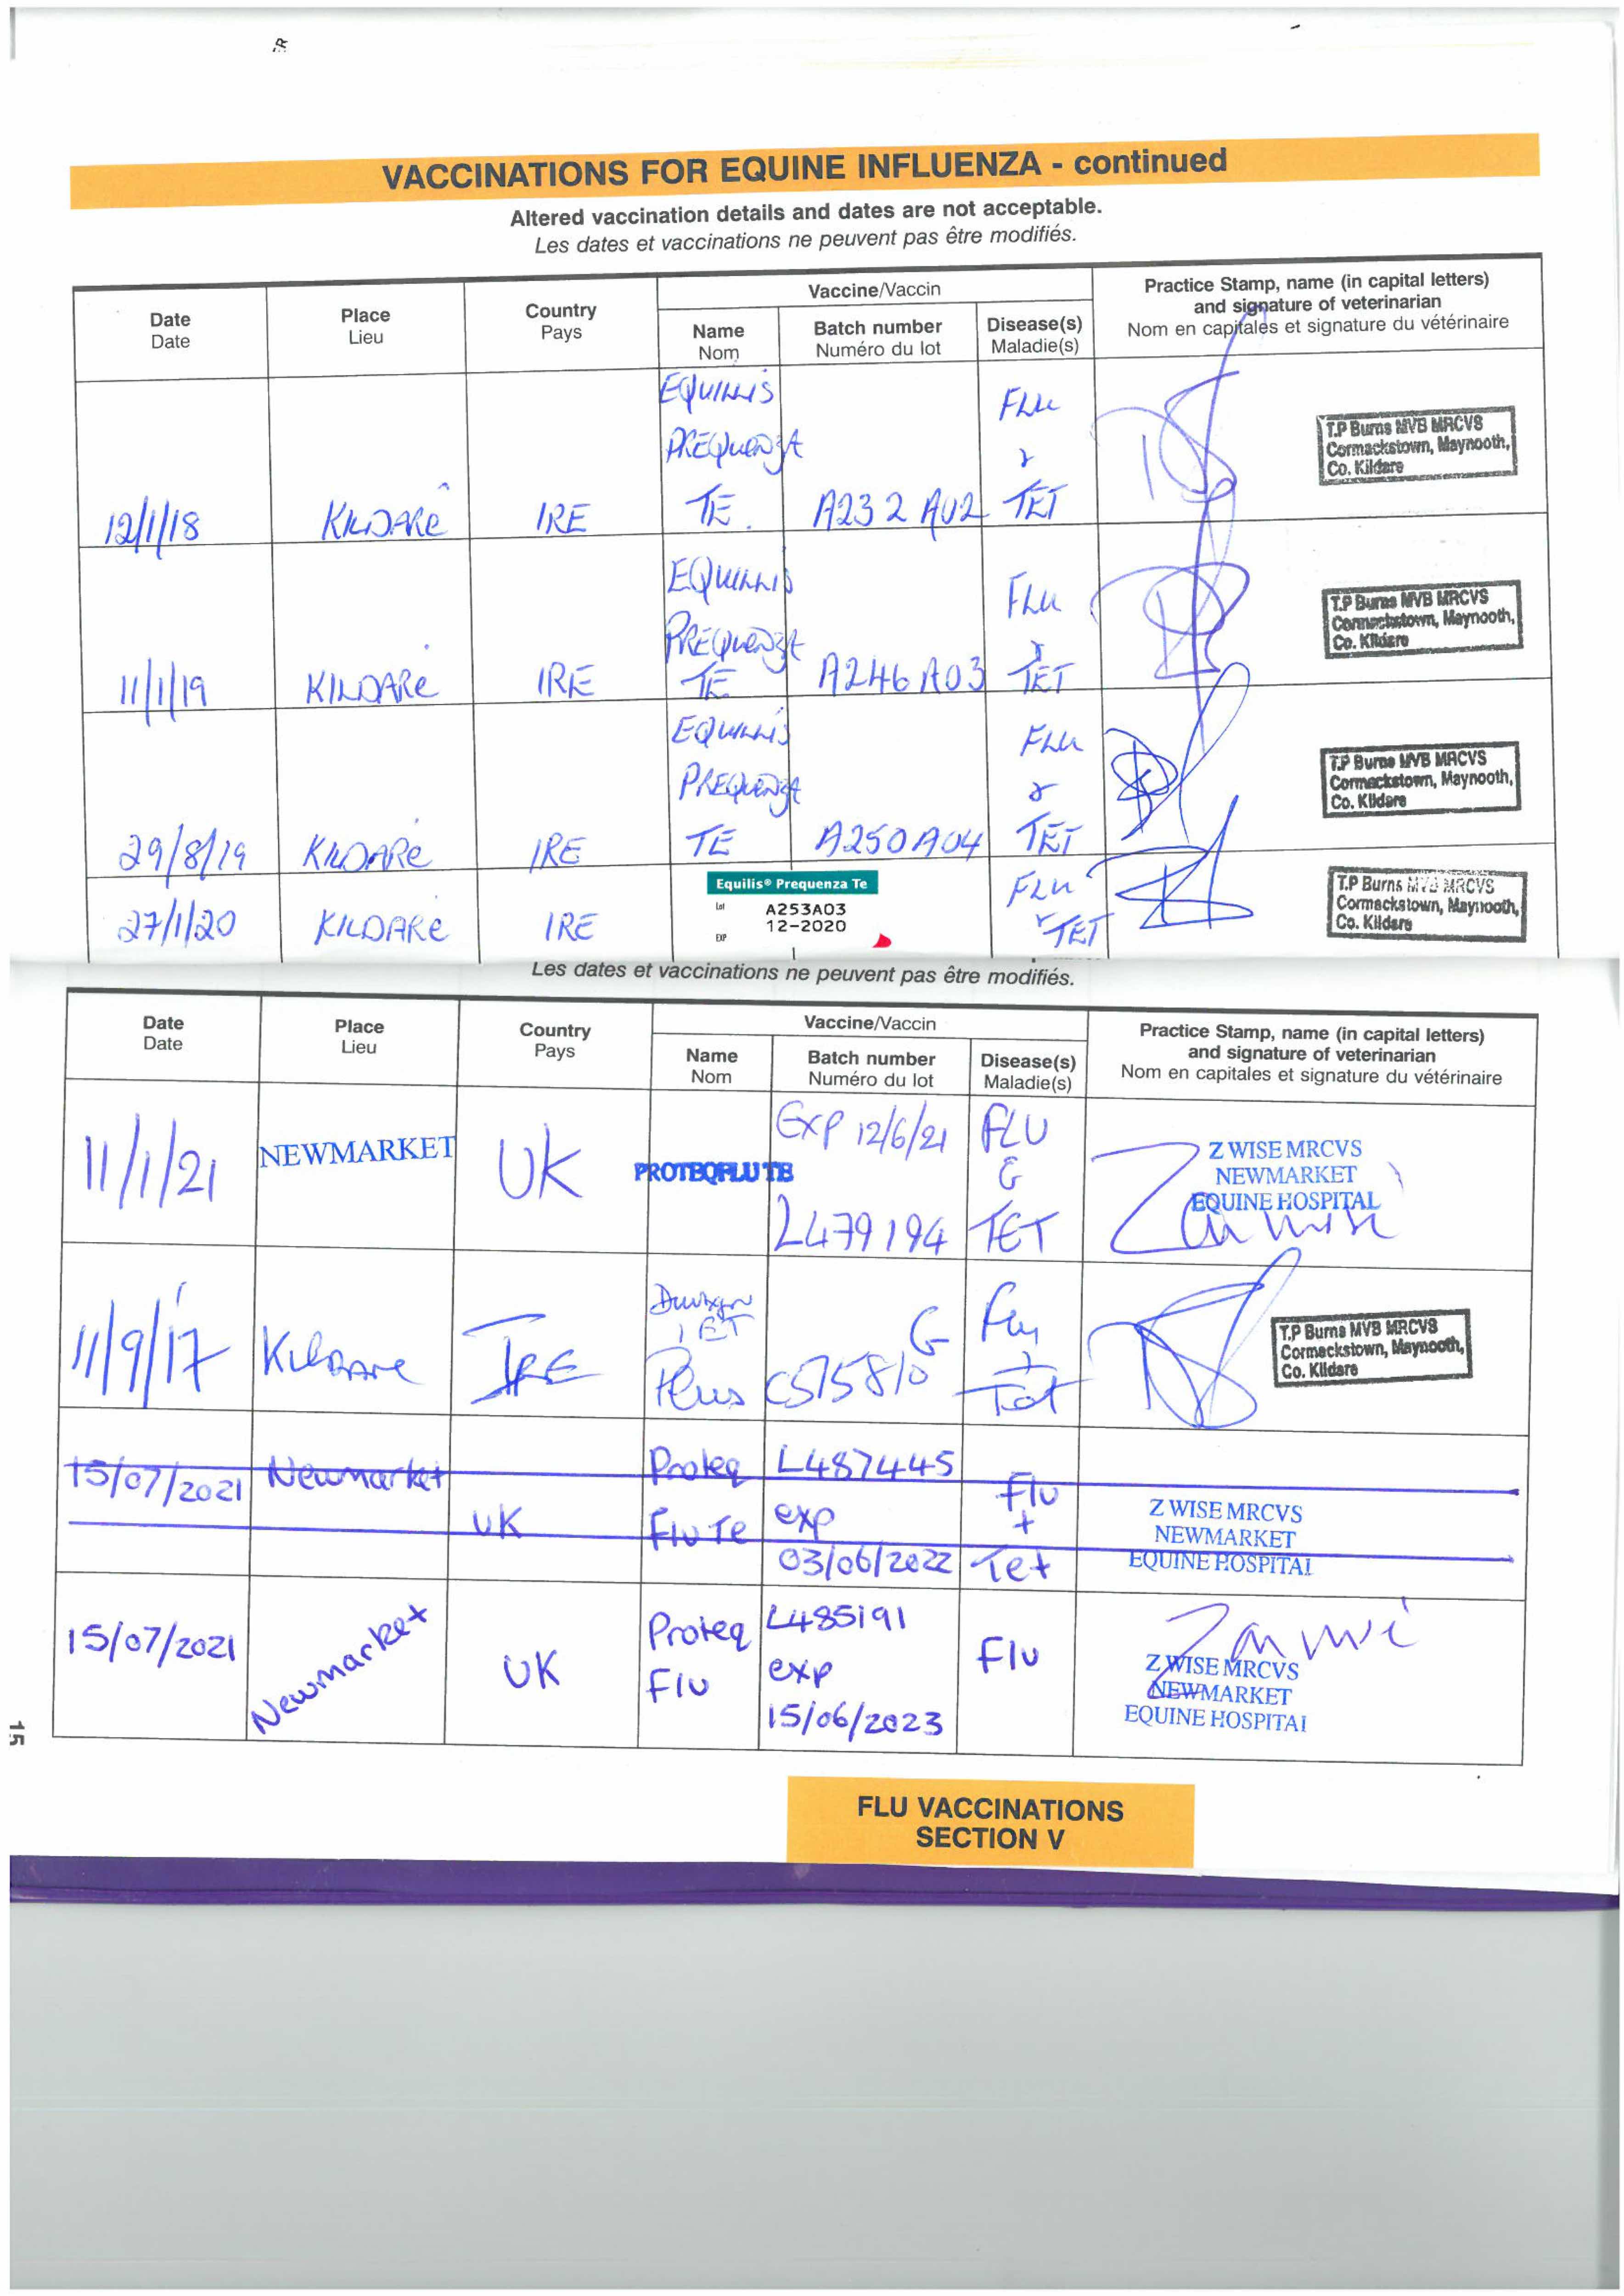 ER
VACCINATIONS FOR EQUINE INFLUENZA - continued
Altered vaccination details and dates are not acceptable.
Les dates et vaccinations ne peuvent pas être modifiés.
Date
Date
Place
Lieu
Country
Pays
Vaccine/Vaccin
Name
Nom
Batch number
Numéro du lot
Disease(s)
Maladie(s)
Practice Stamp, name (in capital letters)
and signature of veterinarian
Nom en capitales et signature du vétérinaire
12/1/18 KILDARE IRE
EQUILLIS
PREQUENZA
TE.
A232 A02
FLU
&
TET
T.P Burns MVB MRCVS
Cormackstown, Maynooth,
Co. Kildare
11/1/19 KILDARE IRE
EQUILLIS
PREQUENZA
TE
A246A03
FLU
&
TET
T.P Burns MVB MRCVS
Cormackstown, Maynooth,
Co. Kildare
29/8/19 KILDARE IRE
EQUILLIS
PREQUENZA
TE
A250A04
FLU
&
TET
T.P Burns MVB MRCVS
Cormackstown, Maynooth,
Co. Kildare
27/1/20 KILDARE IRE
Equilis® Prequenza Te
Lot A253A03
12-2020
EXP
FLU
& TET
T.P Burns MVB MRCVS
Cormackstown, Maynooth,
Co. Kildare
Les dates et vaccinations ne peuvent pas être modifiés.
Date
Date
Place
Lieu
Country
Pays
Vaccine/Vaccin
Name
Nom
Batch number
Numéro du lot
Disease(s)
Maladie(s)
Practice Stamp, name (in capital letters)
and signature of veterinarian
Nom en capitales et signature du vétérinaire
11/1/21 NEWMARKET UK
PROTEQFLU TE
EXP 12/6/21
L479194
FLU
&
TET
Z WISE MRCVS
NEWMARKET
EQUINE HOSPITAL
11/9/17 KILDARE IRE
TET
Plus
C575810
G
Flu
&
Tet
T.P Burns MVB MRCVS
Cormackstown, Maynooth,
Co. Kildare
15/07/2021 Newmarket
UK
Proteq
Flu Te
L487445
exp
03/06/2022
Flu
+
Tet
Z WISE MRCVS
NEWMARKET
EQUINE HOSPITAL
15/07/2021 Newmarket
UK
Proteq
Flu
L485191
exp
15/06/2023
Flu
Z WISE MRCVS
NEWMARKET
EQUINE HOSPITAL
15
FLU VACCINATIONS
SECTION V